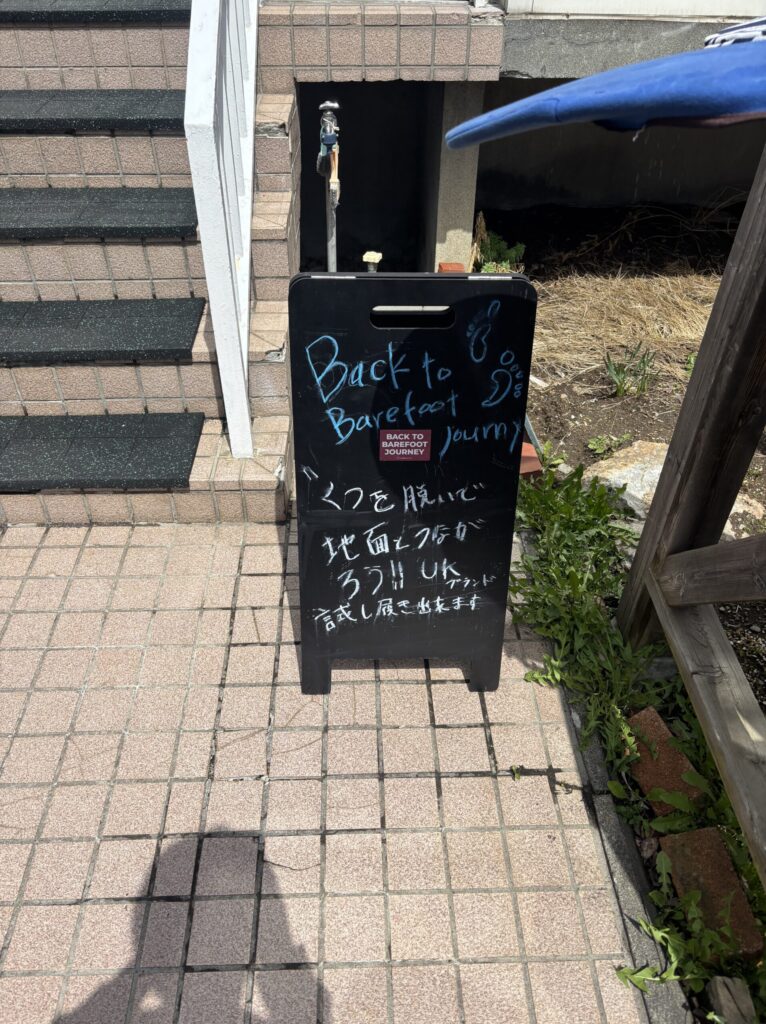 Back to
Barefoot
Journy
BACK TO
BAREFOOT
JOURNEY
"くつを脱いで
地面とつなが
ろう!! UK
ブランド
試し履き出来ます